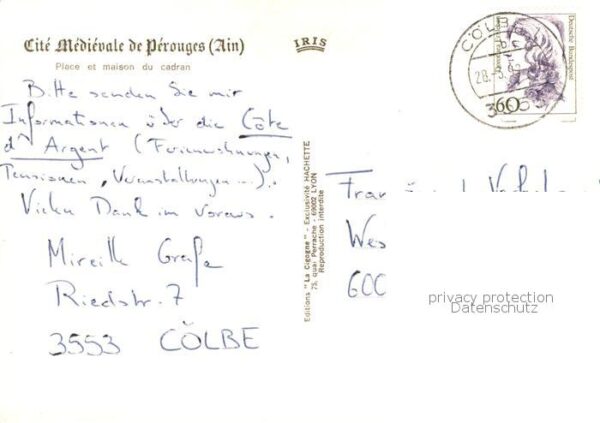 Cité Médiévale de Pérouges (Ain)
Place et maison du cadran
IRIS
Bitte senden Sie mir
Informationen über die Côte
d'Argent (Ferienwohnungen,
Pensionen, Veranstaltungen...).
Vielen Dank im voraus.
Mireille
Riedstr. 7
3553 CÖLBE
Editions "La Cigogne" - Exclusivité HACHETTE
75, quai Perrache - 69002 LYON
Reproduction interdite
CÖLBE
28.-5.
355
60
Deutsche Bundespost
Wes
600
privacy protection
Datenschutz